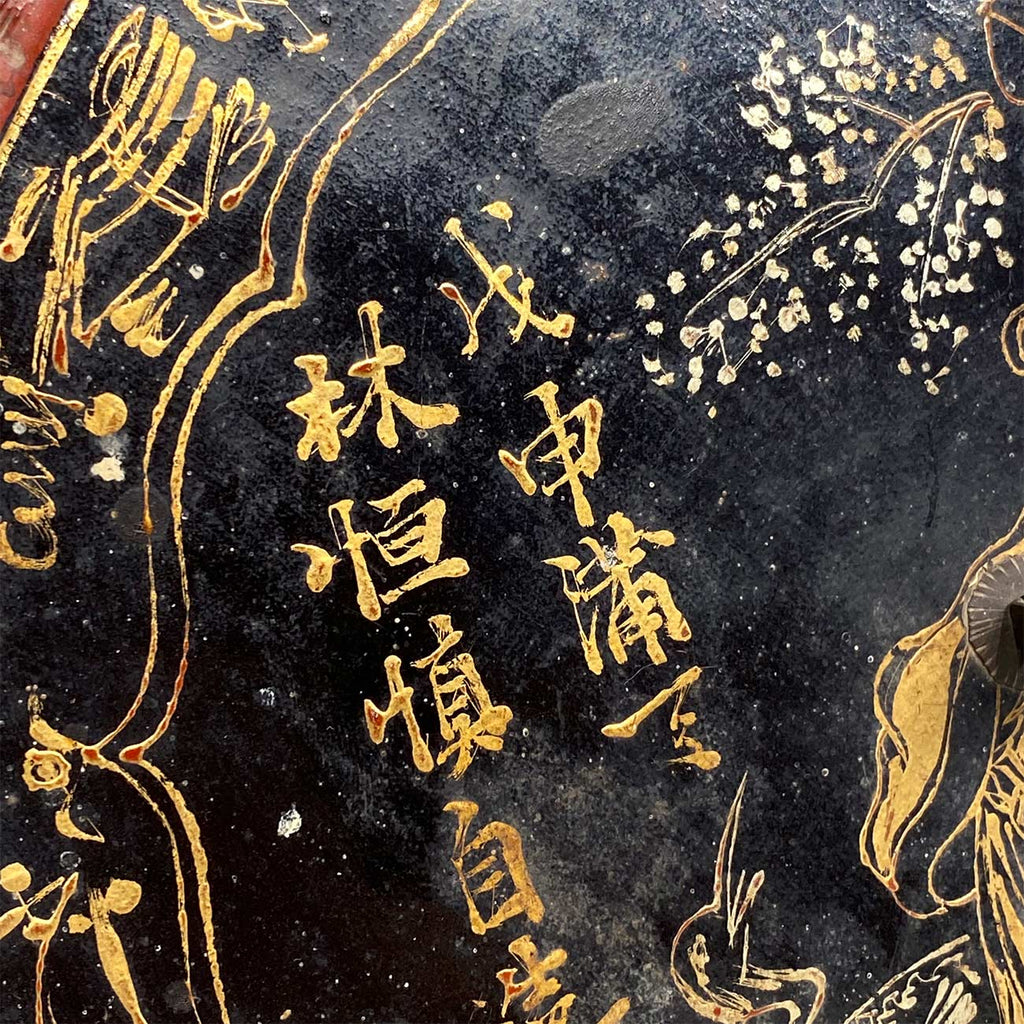 戊申蒲立
林恒慎自